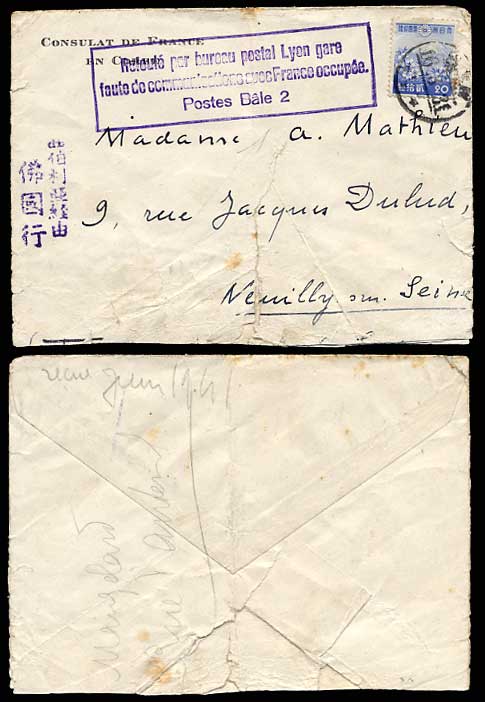 CONSULAT DE FRANCE
EN CORÉE
Refoulé par bureau postal Lyon gare
faute de communications avec France occupée.
Postes Bâle 2
20
Madame A. Mathieu
9, rue Jacques Dulud,
Neuilly sur Seine
西伯利亜経由
佛国行
reçue juin 1941